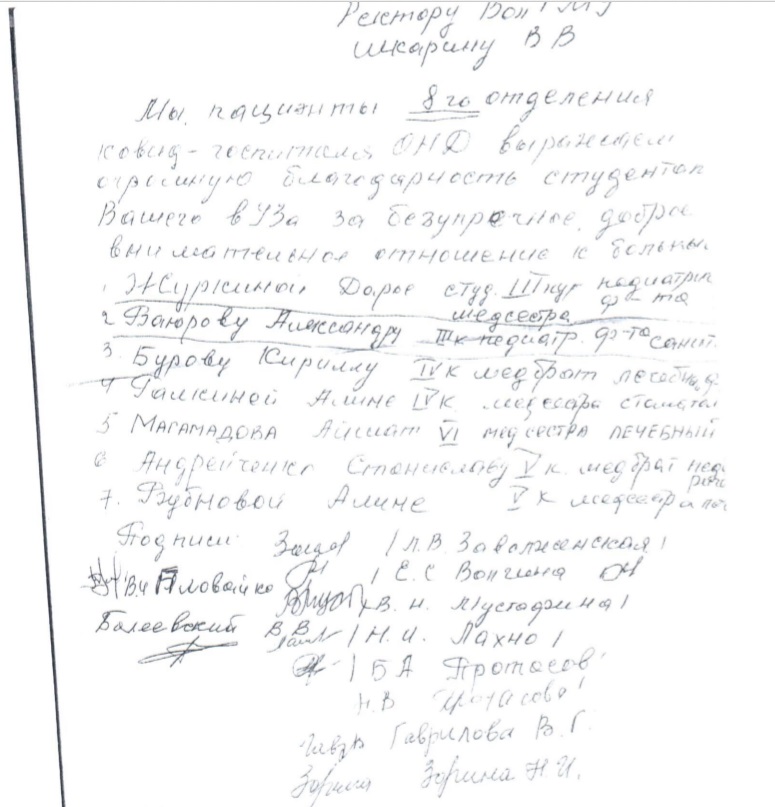 Ректору ВолГМУ
Шкарину В В
Мы, пациенты 8го отделения
ковид-госпиталя ОНД выражаем
огромную благодарность студентам
Вашего вУЗа за безупречное, доброе
внимательное отношение к больны
1. Журкиной Дарье студ. III кур педиатрич
ф-та
медсестра
2. Ваюрову Александру III к педиатр. ф-та санит.
3. Бурову Кириллу IV к медбрат лечебн. ф.
4 Галкиной Алине IV к. медсестра стоматол
5 МАГАМАДОВА Айшат VI МЕДСЕСТРА ЛЕЧЕБНЫЙ
6 Андрейченко Станиславу V к. медбрат педи
7. Рубновой Алине V к медсестра
Подписи: /Л.В. Заволженская/
/ Е.С Волгина
В.И Пловайко /В. Н. Мустафина/
Балеевский В.В. /Н.И. Лахно/
/ Б А Протасов/
Н.В Протасова/
Гаврилова В.Г.
Зорина Н.И.